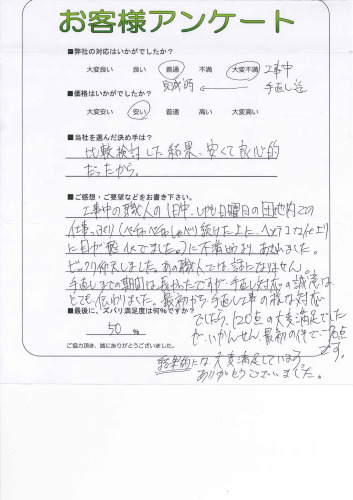 お客様アンケート
■弊社の対応はいかがでしたか?
大変良い 良い 普通 不満 大変不満 工事中
完成時 ← 手直し迄
■価格はいかがでしたか?
大変安い 安い 普通 高い 大変高い
■当社を選んだ決め手は?
比較検討した結果、安くて良心的
だったから。
■ご感想・ご要望などをお書き下さい。
工事中の職人の1日中、しかも日曜日の団地内での
仕事っぷり(ペチャペチャしゃべり続けた上に、ヘタクソな仕上り
に目が点でした。)に不満よりあきれました。
ビックリ仰天しました。あの職人では話になりません。
手直しまでの期間は長かったですが手直し対応の誠意は
とても伝わりました。最初から手直し工事の様な対応
でしたら、120点の大変満足でした
が、いかんせん、最初の件で・・・
です。
■最後に、ズバリ満足度は何%ですか?
50 %
ご協力頂き、誠にありがとうございました。
結果的には大変満足しています。
ありがとうございました。